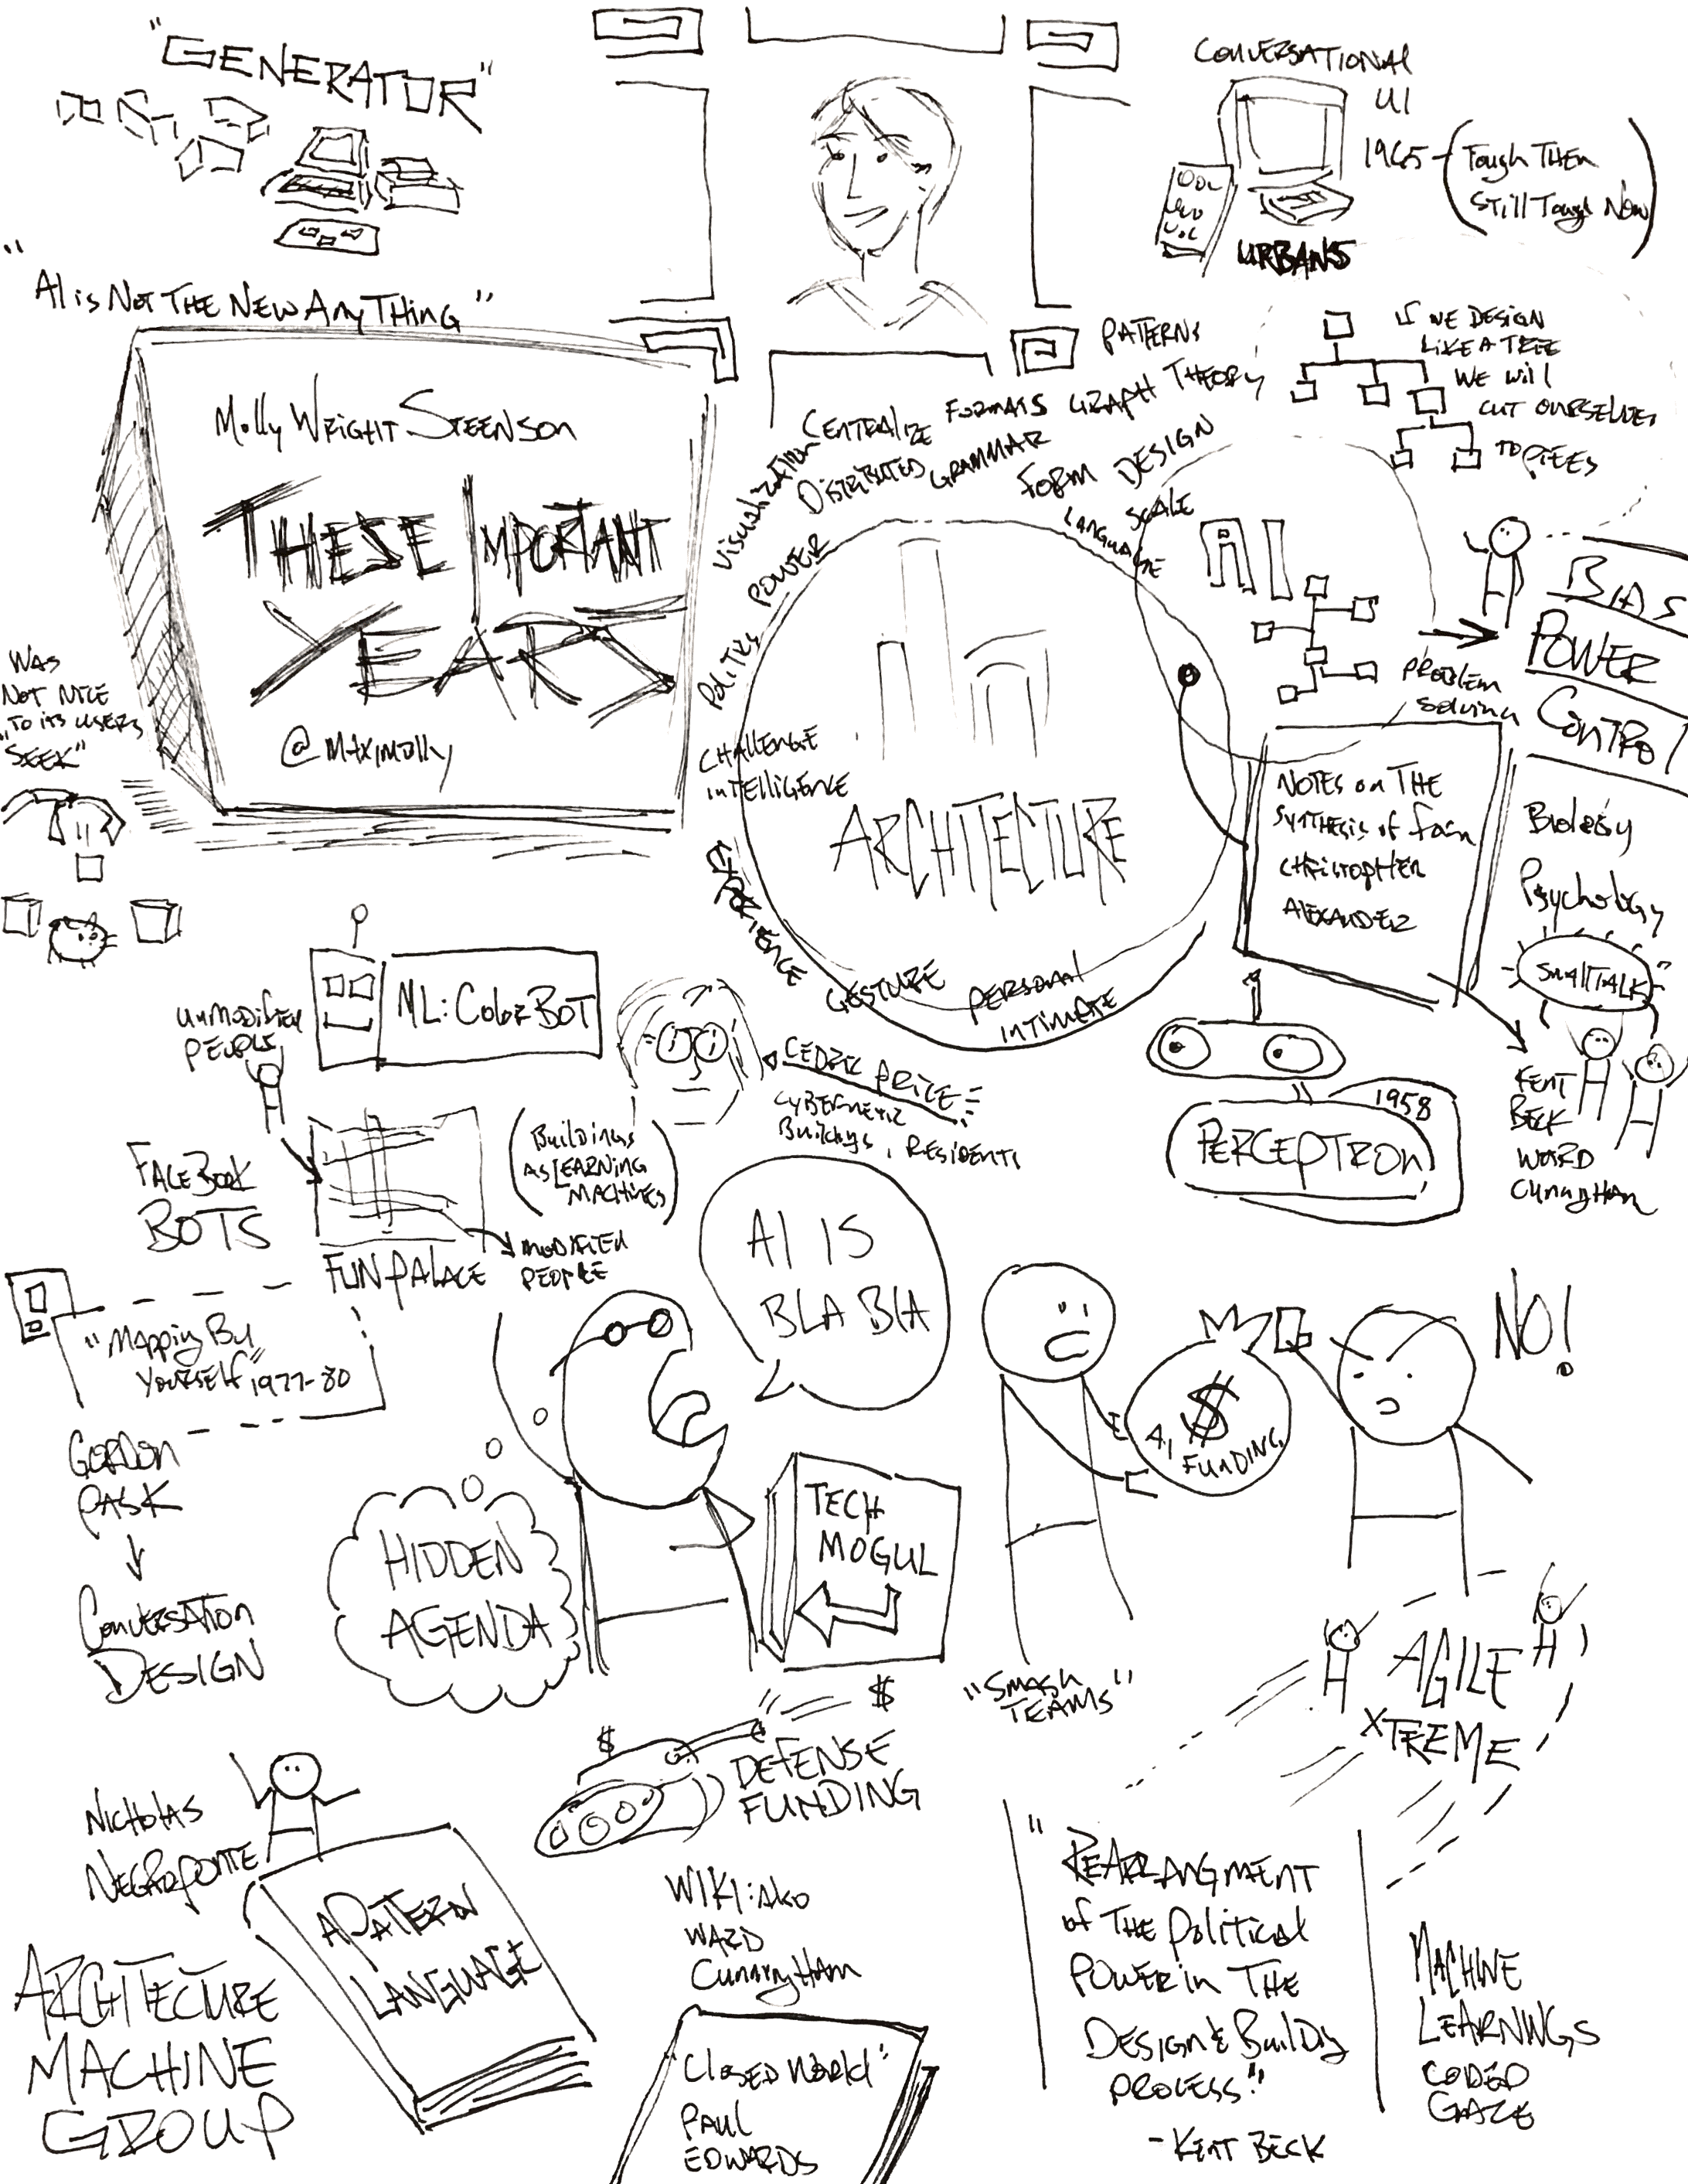 "GENERATOR"
"
AI is NOT THE NEW ANYTHING"
CONVERSATIONAL
UI
1965 - (Tough THEN
Still Tough Now)
URBAN5
Molly WRIGHT STEENSON
THESE IMPORTANT
YEARS
@maximolly
PATTERNS
CENTRALIZE FORMATS GRAPH THEORY
Visualization DISTRIBUTED GRAMMAR FORM DESIGN
SCALE
LANGUAGE
POWER
Politics
CHALLENGE
inTElligENCE
EXPERIENCE
GESTURE
PERSONAL
INTIMATE
ARCHITECTURE
IF WE DESIGN
LIKE A TREE
WE will
CUT OURSELVES
TO PIEES
AI
PROBLEM
Solving
BIAS
POWER
CONTROl
WAS
NOT NICE
TO ITS USERS
SEEK"
NOTES on THE
SYNTHESIS of form
CHRISTOPHER
ALEXANDER
Biology
Psychology
SMALLTALK
KENT
BECK
WARD
CUNNYHAM
UNMODIFIED
PEOPLE
ML: COLORBOT
CEDRIC PRICE
CYBERNETIC
Buildings, RESIDENTS
(Buildings
AS LEARNING
MACHINES)
FACEBOOK
BOTS
FUN PALACE
MODIFIED
PEOPLE
1958
PERCEPTRON
"Mapping By
YOURSELF" 1977-80
GORDON
PASK
CONVERSATION
DESIGN
AI IS
BLA BLA
HIDDEN
AGENDA
TECH
MOGUL
$
A.I
FUNDING
NO!
"SMASH
TEAMS"
AGILE
XTREME
$
$
DEFENSE
FUNDING
NICHOLAS
NEGROPONTE
A PATTERN
LANGUAGE
ARCHITECTURE
MACHINE
GROUP
WIKI: AKO
WARD
CUNNYNGHAM
"Closed World"
PAUL
EDWARDS
"REARRANGMENT
of THE political
POWER in THE
DESIGN & Buildig
PROCESS."
- KENT BECK
MACHINE
LEARNINGS
CODED
GAZE